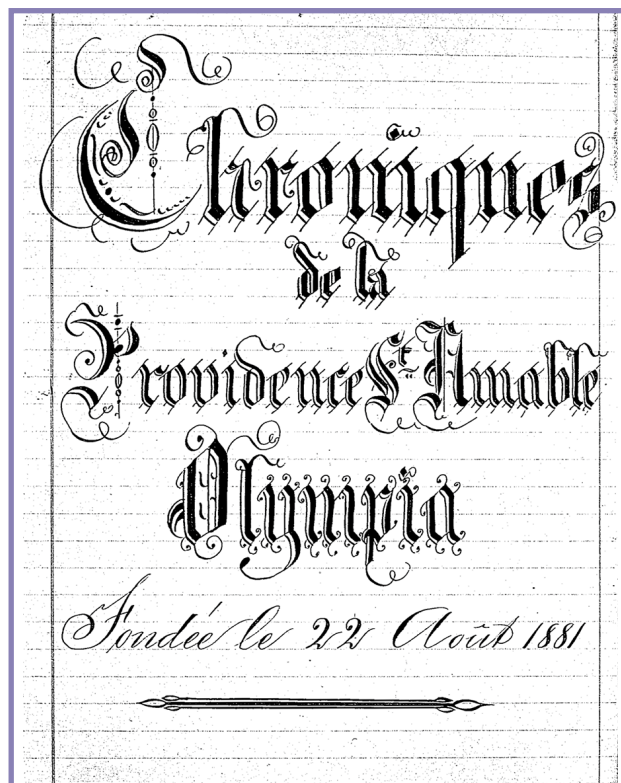 Chroniques
de la
Providence St Amable
Olympia
Fondée le 22 Août 1881